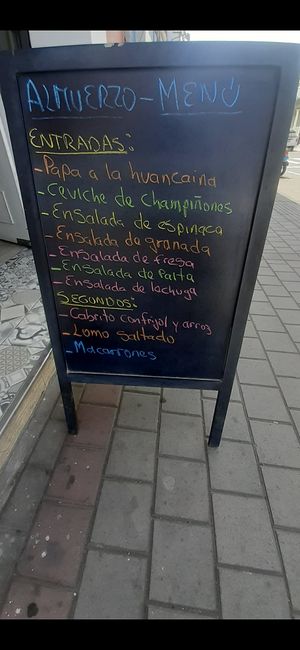 ALMUERZO - MENÚ
ENTRADAS:
- Papa a la huancaina
- Ceviche de Champiñones
- Ensalada de espinaca
- Ensalada de granada
- Ensalada de fresa
- Ensalada de Palta
- Ensalada de lechuga
SEGUNDOS:
- Cabrito con frijol y arroz
- Lomo Saltado
- Macarrones